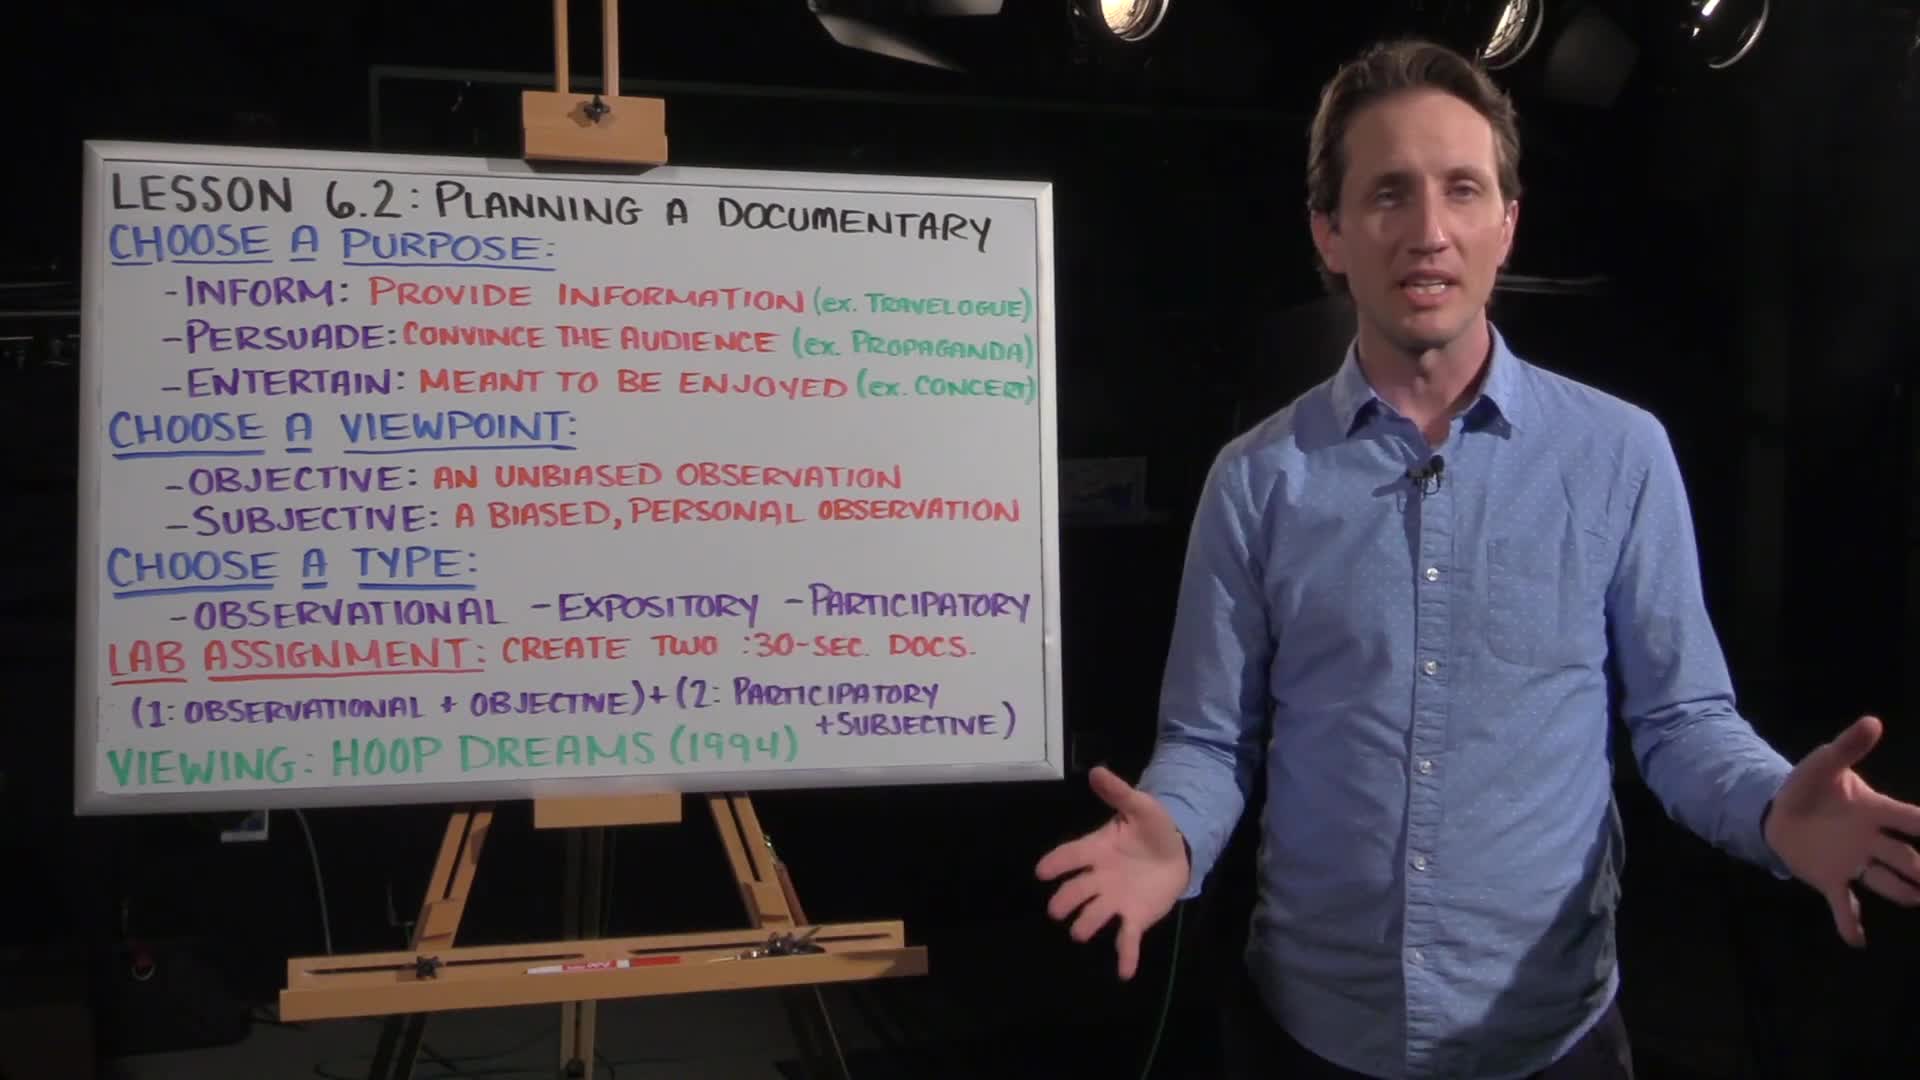 LESSON 6.2: PLANNING A DOCUMENTARY
CHOOSE A PURPOSE:
-INFORM: PROVIDE INFORMATION (ex. TRAVELOGUE)
-PERSUADE: CONVINCE THE AUDIENCE (ex. PROPAGANDA)
-ENTERTAIN: MEANT TO BE ENJOYED (ex. CONCERT)
CHOOSE A VIEWPOINT:
-OBJECTIVE: AN UNBIASED OBSERVATION
-SUBJECTIVE: A BIASED, PERSONAL OBSERVATION
CHOOSE A TYPE:
-OBSERVATIONAL -EXPOSITORY -PARTICIPATORY
LAB ASSIGNMENT: CREATE TWO :30-SEC. DOCS.
(1: OBSERVATIONAL + OBJECTIVE)+(2: PARTICIPATORY
+SUBJECTIVE)
VIEWING: HOOP DREAMS (1994)